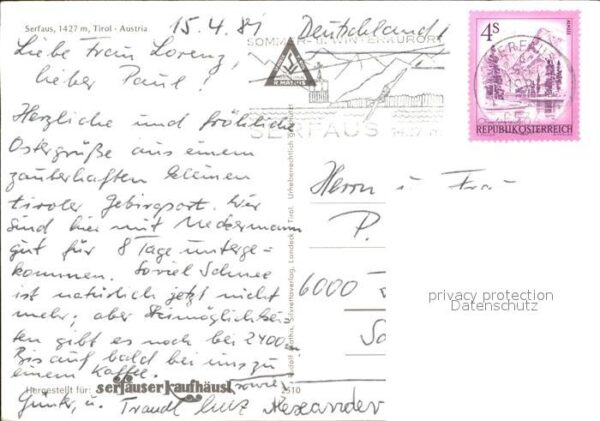 Serfaus, 1427 m, Tirol - Austria
15.4.81
Deutschland
Liebe Frau Lorenz,
lieber Paul!
Herzliche und fröhliche
Ostergrüße aus einem
zauberhaften kleinen
tiroler Gebirgsort. Wir
sind hier mit Neckermann
gut für 8 Tage unterge-
kommen. Soviel Schnee
ist natürlich jetzt nicht
mehr; aber Skimöglichkei-
ten gibt es noch bei 2400 m
Bis auf bald bei uns zu
einem Kaffee.
Hergestellt für: serfauser kaufhäusl
sowie
Günter u. Traudl Alexander
2510
Tirol. Urheberrechtlich geschützt
SOMMER- U. WINTERKURORT
SERFAUS 1427 m
4S
REPUBLIK ÖSTERREICH
Herrn u. Frau
P.
6000
privacy protection
Datenschutz